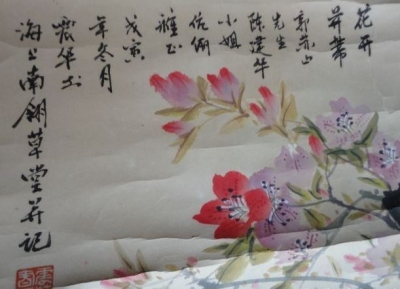 花开
并蒂
郭苏山
先生
陈建华
小姐
伉俪
雅正
戊寅
年冬月
震华于
海上南翎草堂并记